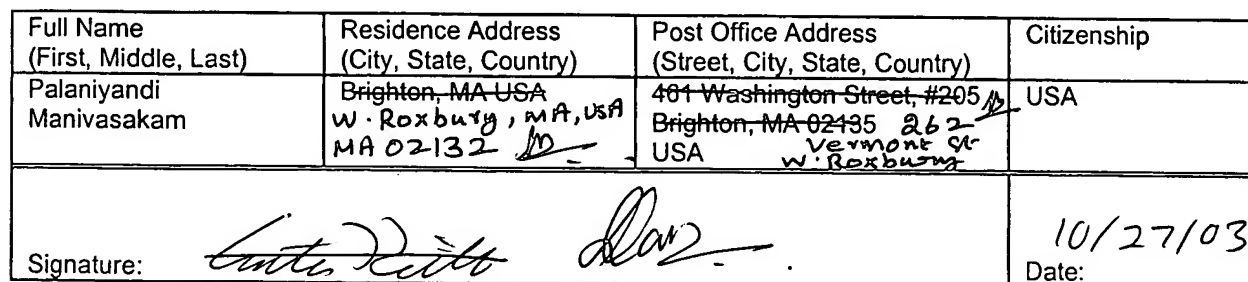 Full Name
(First, Middle, Last)
Residence Address
(City, State, Country)
Post Office Address
(Street, City, State, Country)
Citizenship
Palaniyandi
Manivasakam
Brighton, MA USA
W. Roxbury, MA, USA
MA 02132
461 Washington Street, #205
Brighton, MA 02135 262
USA Vermont St
W. Roxbury
USA
Signature:
10/27/03
Date: